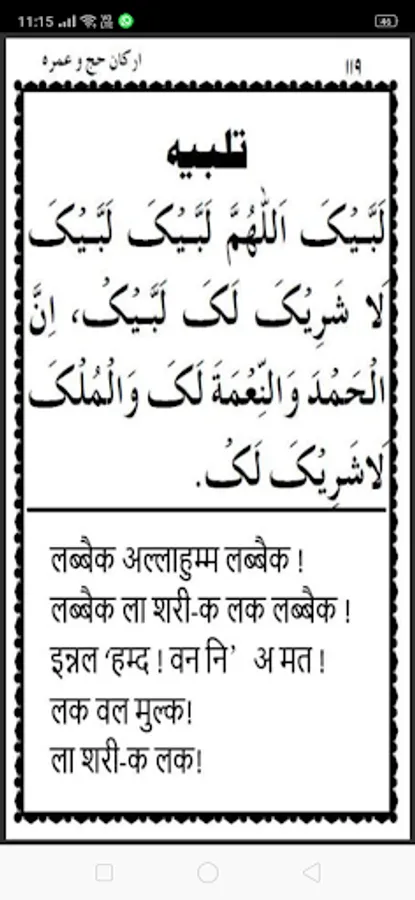 11:15
46
ارکان حج و عمرہ
۱۱۹
تلبیہ
لَبَّیْکَ اَللّٰهُمَّ لَبَّیْکَ لَبَّیْکَ
لَا شَرِیْکَ لَکَ لَبَّیْکْ، اِنَّ
الْحَمْدَ وَالنِّعْمَةَ لَکَ وَالْمُلْکَ
لَاشَرِیْکَ لَکْ.
लब्बैक अल्लाहुम्म लब्बैक !
लब्बैक ला शरी-क लक लब्बैक !
इन्नल ‘हम्द ! वन नि’ अ मत !
लक वल मुल्क!
ला शरी-क लक!